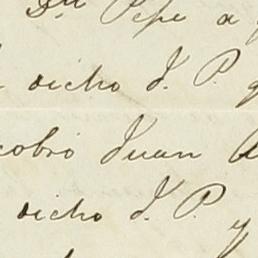 Dn Pepe a
dicho d. P. q
cobró Juan
dicho d. P. y